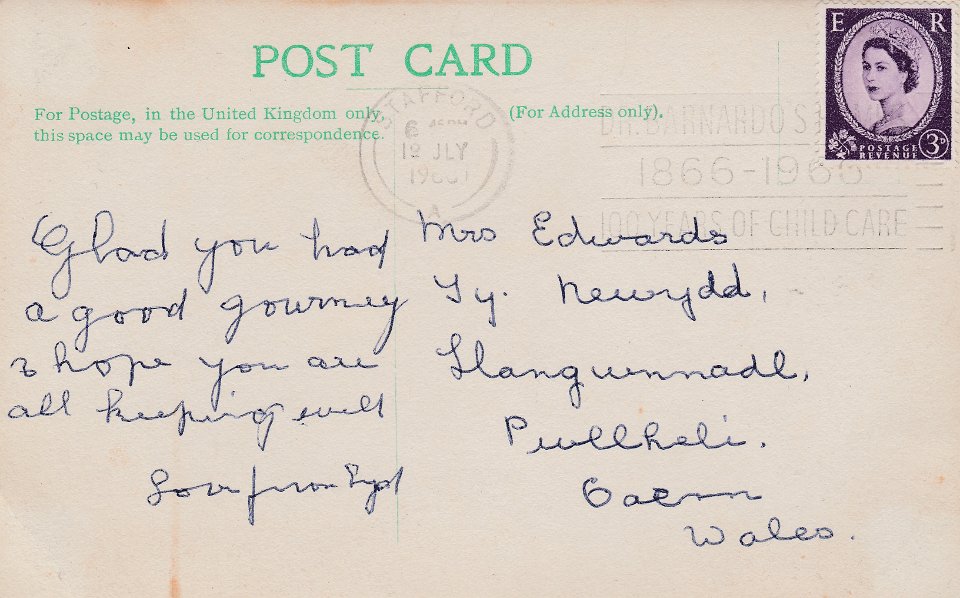 POST CARD
For Postage, in the United Kingdom only,
this space may be used for correspondence.
(For Address only).
E R
POSTAGE
REVENUE
3D
STAFFORD
PM
19 JLY
DR. BARNARDO'S
1866-1966
100 YEARS OF CHILD CARE
Glad you had
a good journey
& hope you are
all keeping well
Love from
Mrs Edwards
Ty. Newydd,
Llangwnnadl,
Pwllheli.
Caern
Wales.